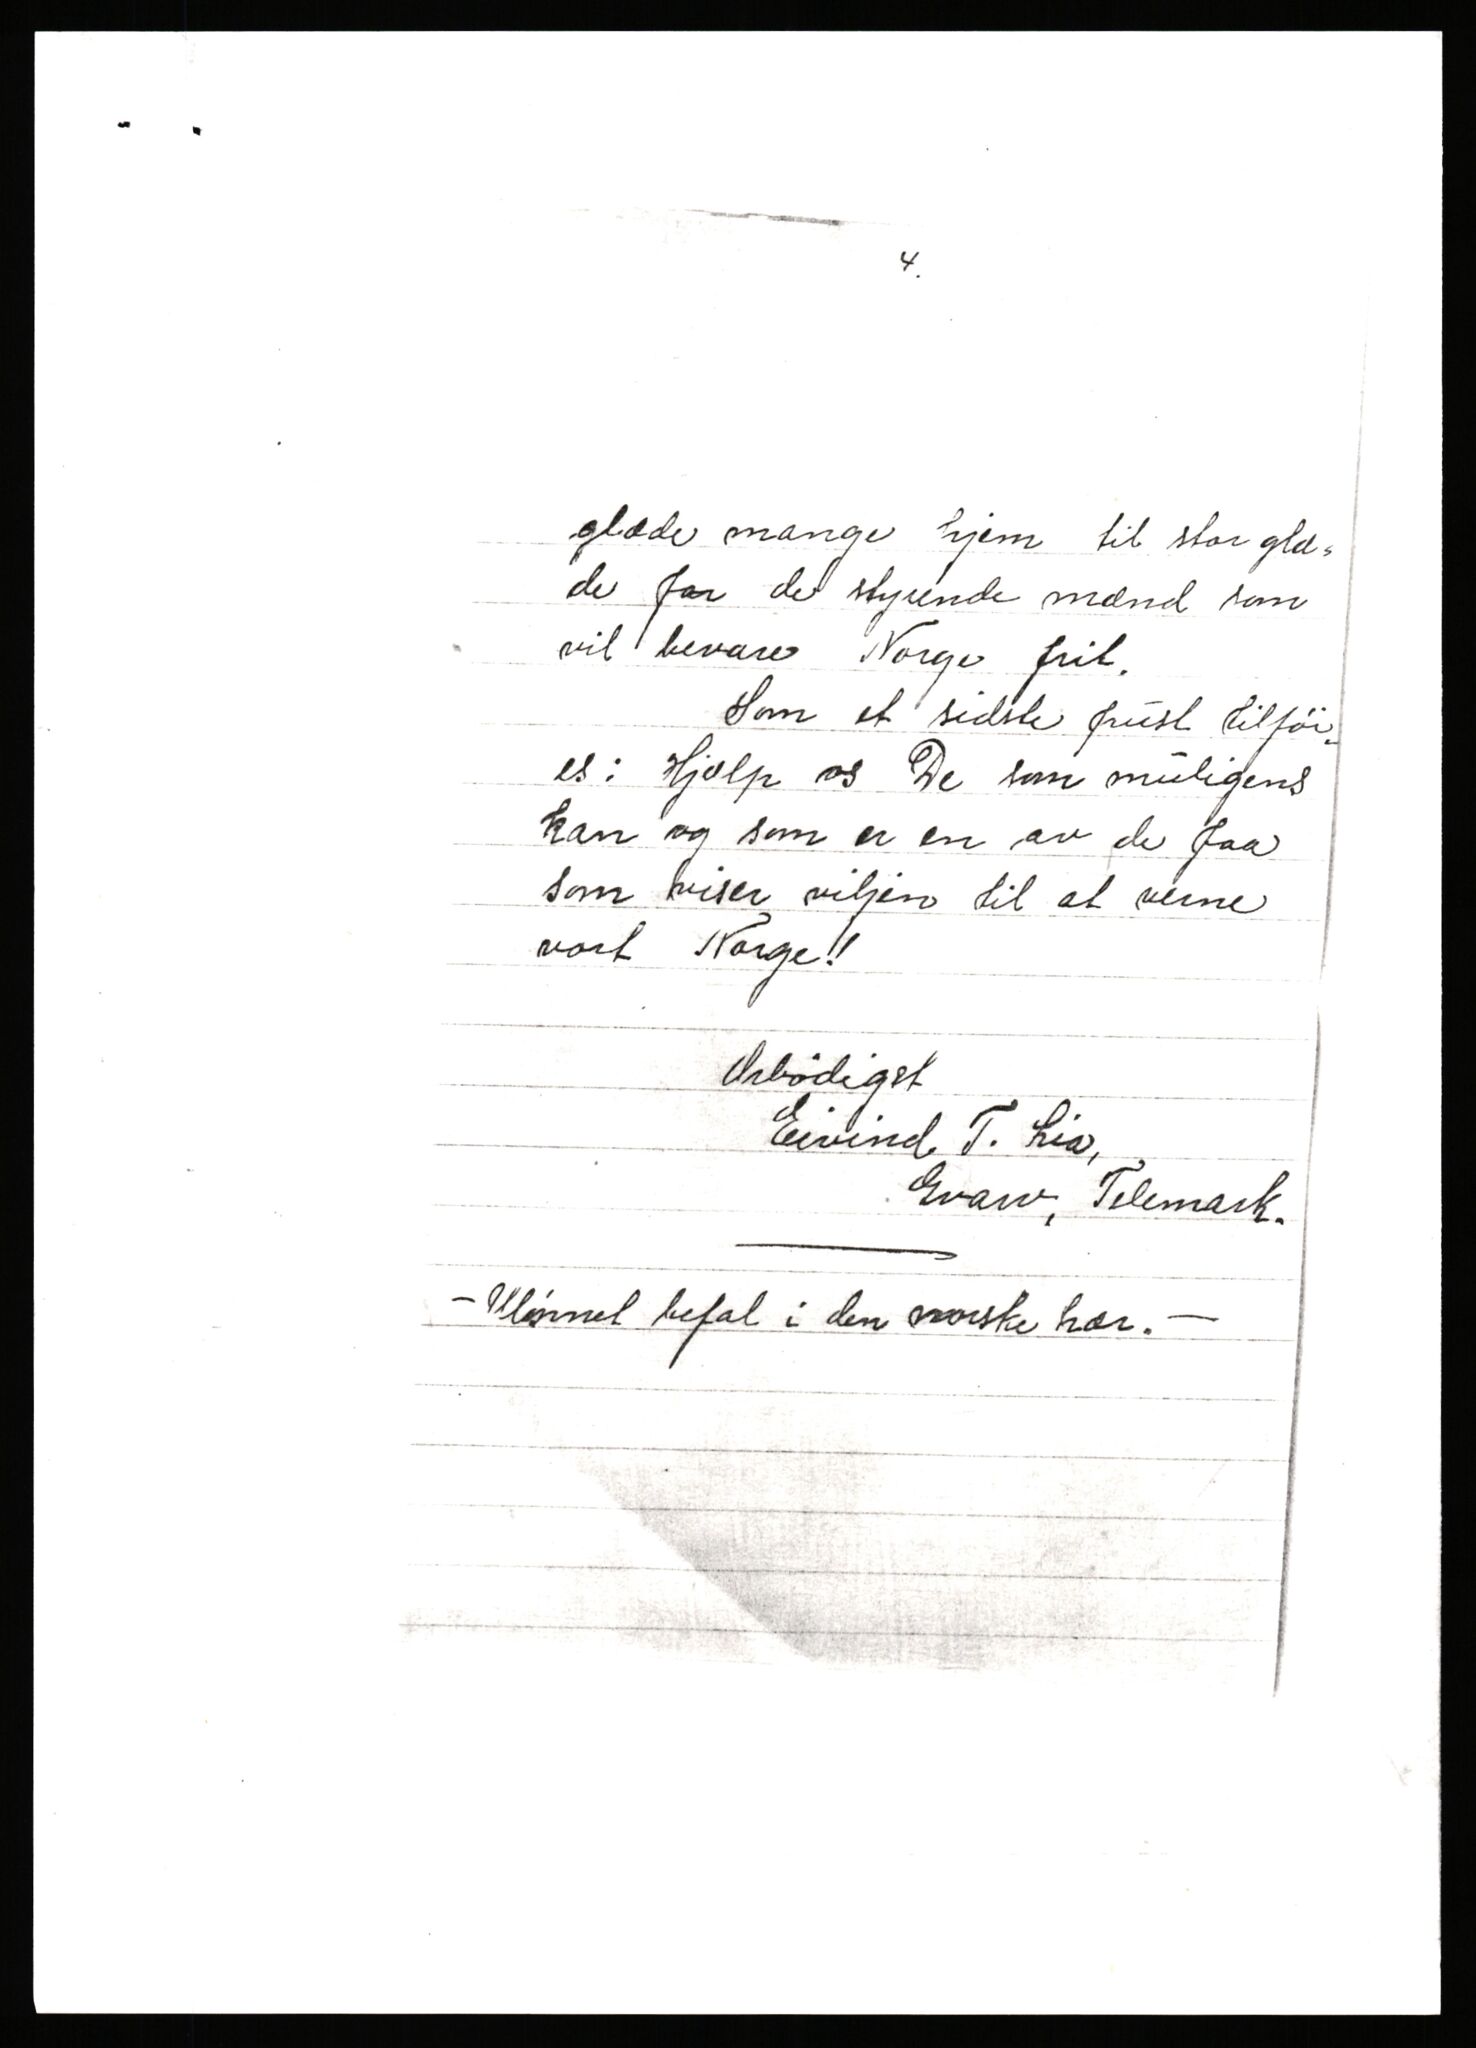 4.
glæde mange hjem til stor glæ-
de for de styrende mænd som
vil bevare Norge frit.
Som et sidste pust tilföi-
es: Hjælp os De som muligens
kan og som er en av de faa
som viser viljen til at verne
vort Norge!
Ærbödigst
Eivind T. Lia,
Gvarv, Telemark.
- Ulönnet befal i den norske hær. -